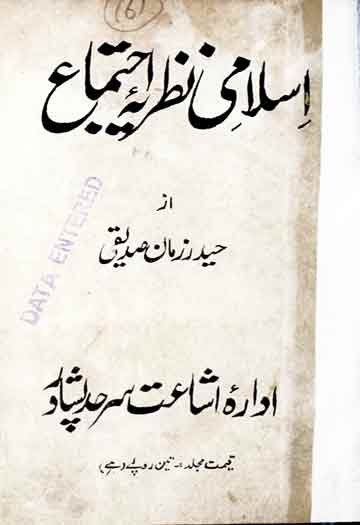 (6)
اسلامی نظریۂ اجتماع
از
حیدر زمان صدیقی
DATA ENTERED
ادارۂ اشاعت سرحد پشاور
(قیمت مجلد:- تین روپے)